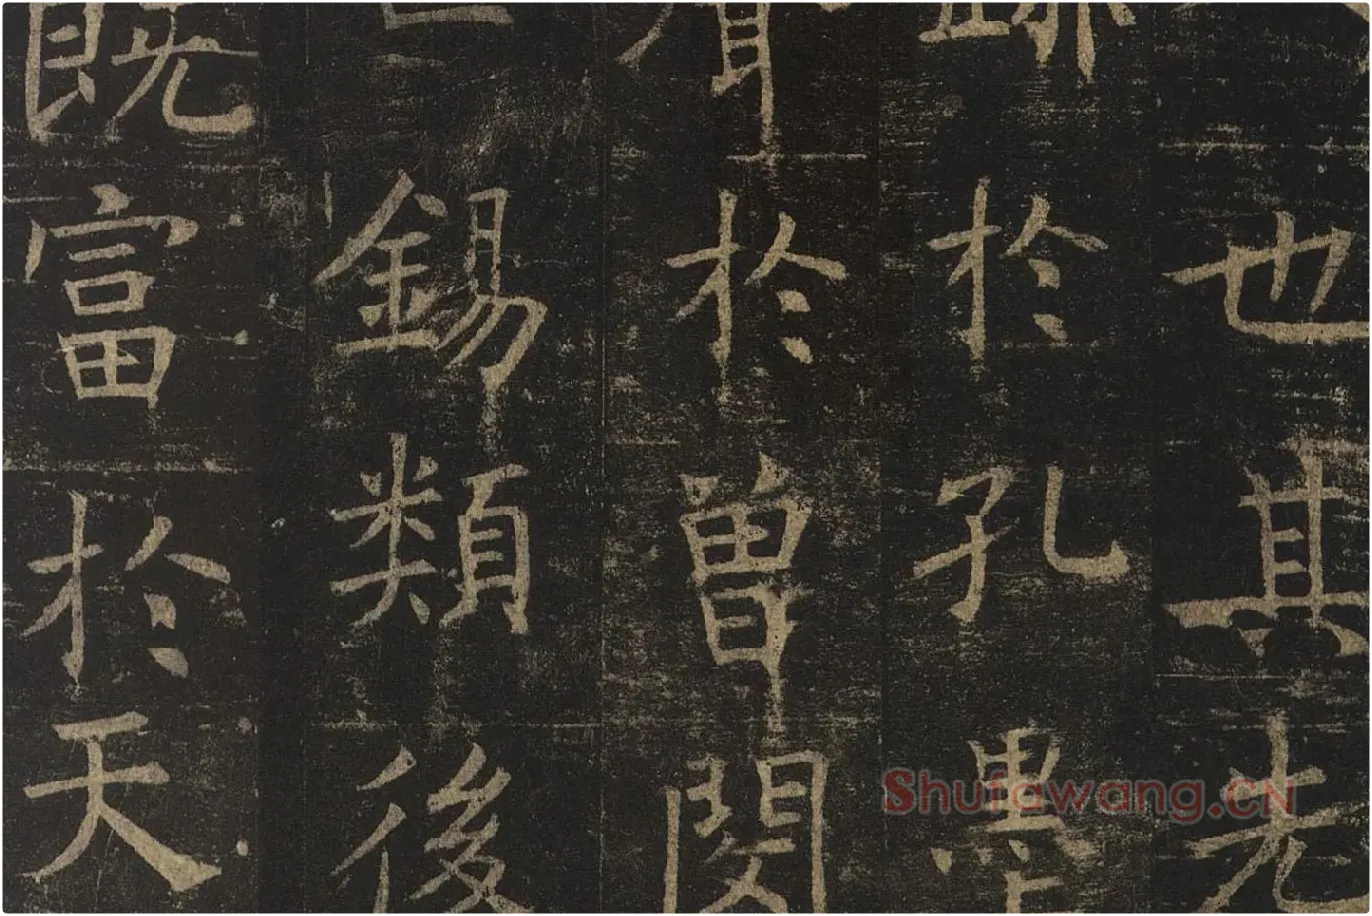 也其先
於孔墨
於曾閔
錫類後
既富於天
Shufawang.CN